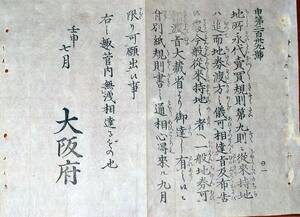 申第二百卅九號
地所永代賣買規則第九則從來持地
ハ追而地券渡方之儀可相達旨及布告
置候處今般從來持地之者ヘ一般地券可
渡旨大藏省より御達し有之候ニ付
別紙規則書之通相心得來ル九月
限り可願出事
右之趣管内無洩相達るもの也
壬申七月
大阪府